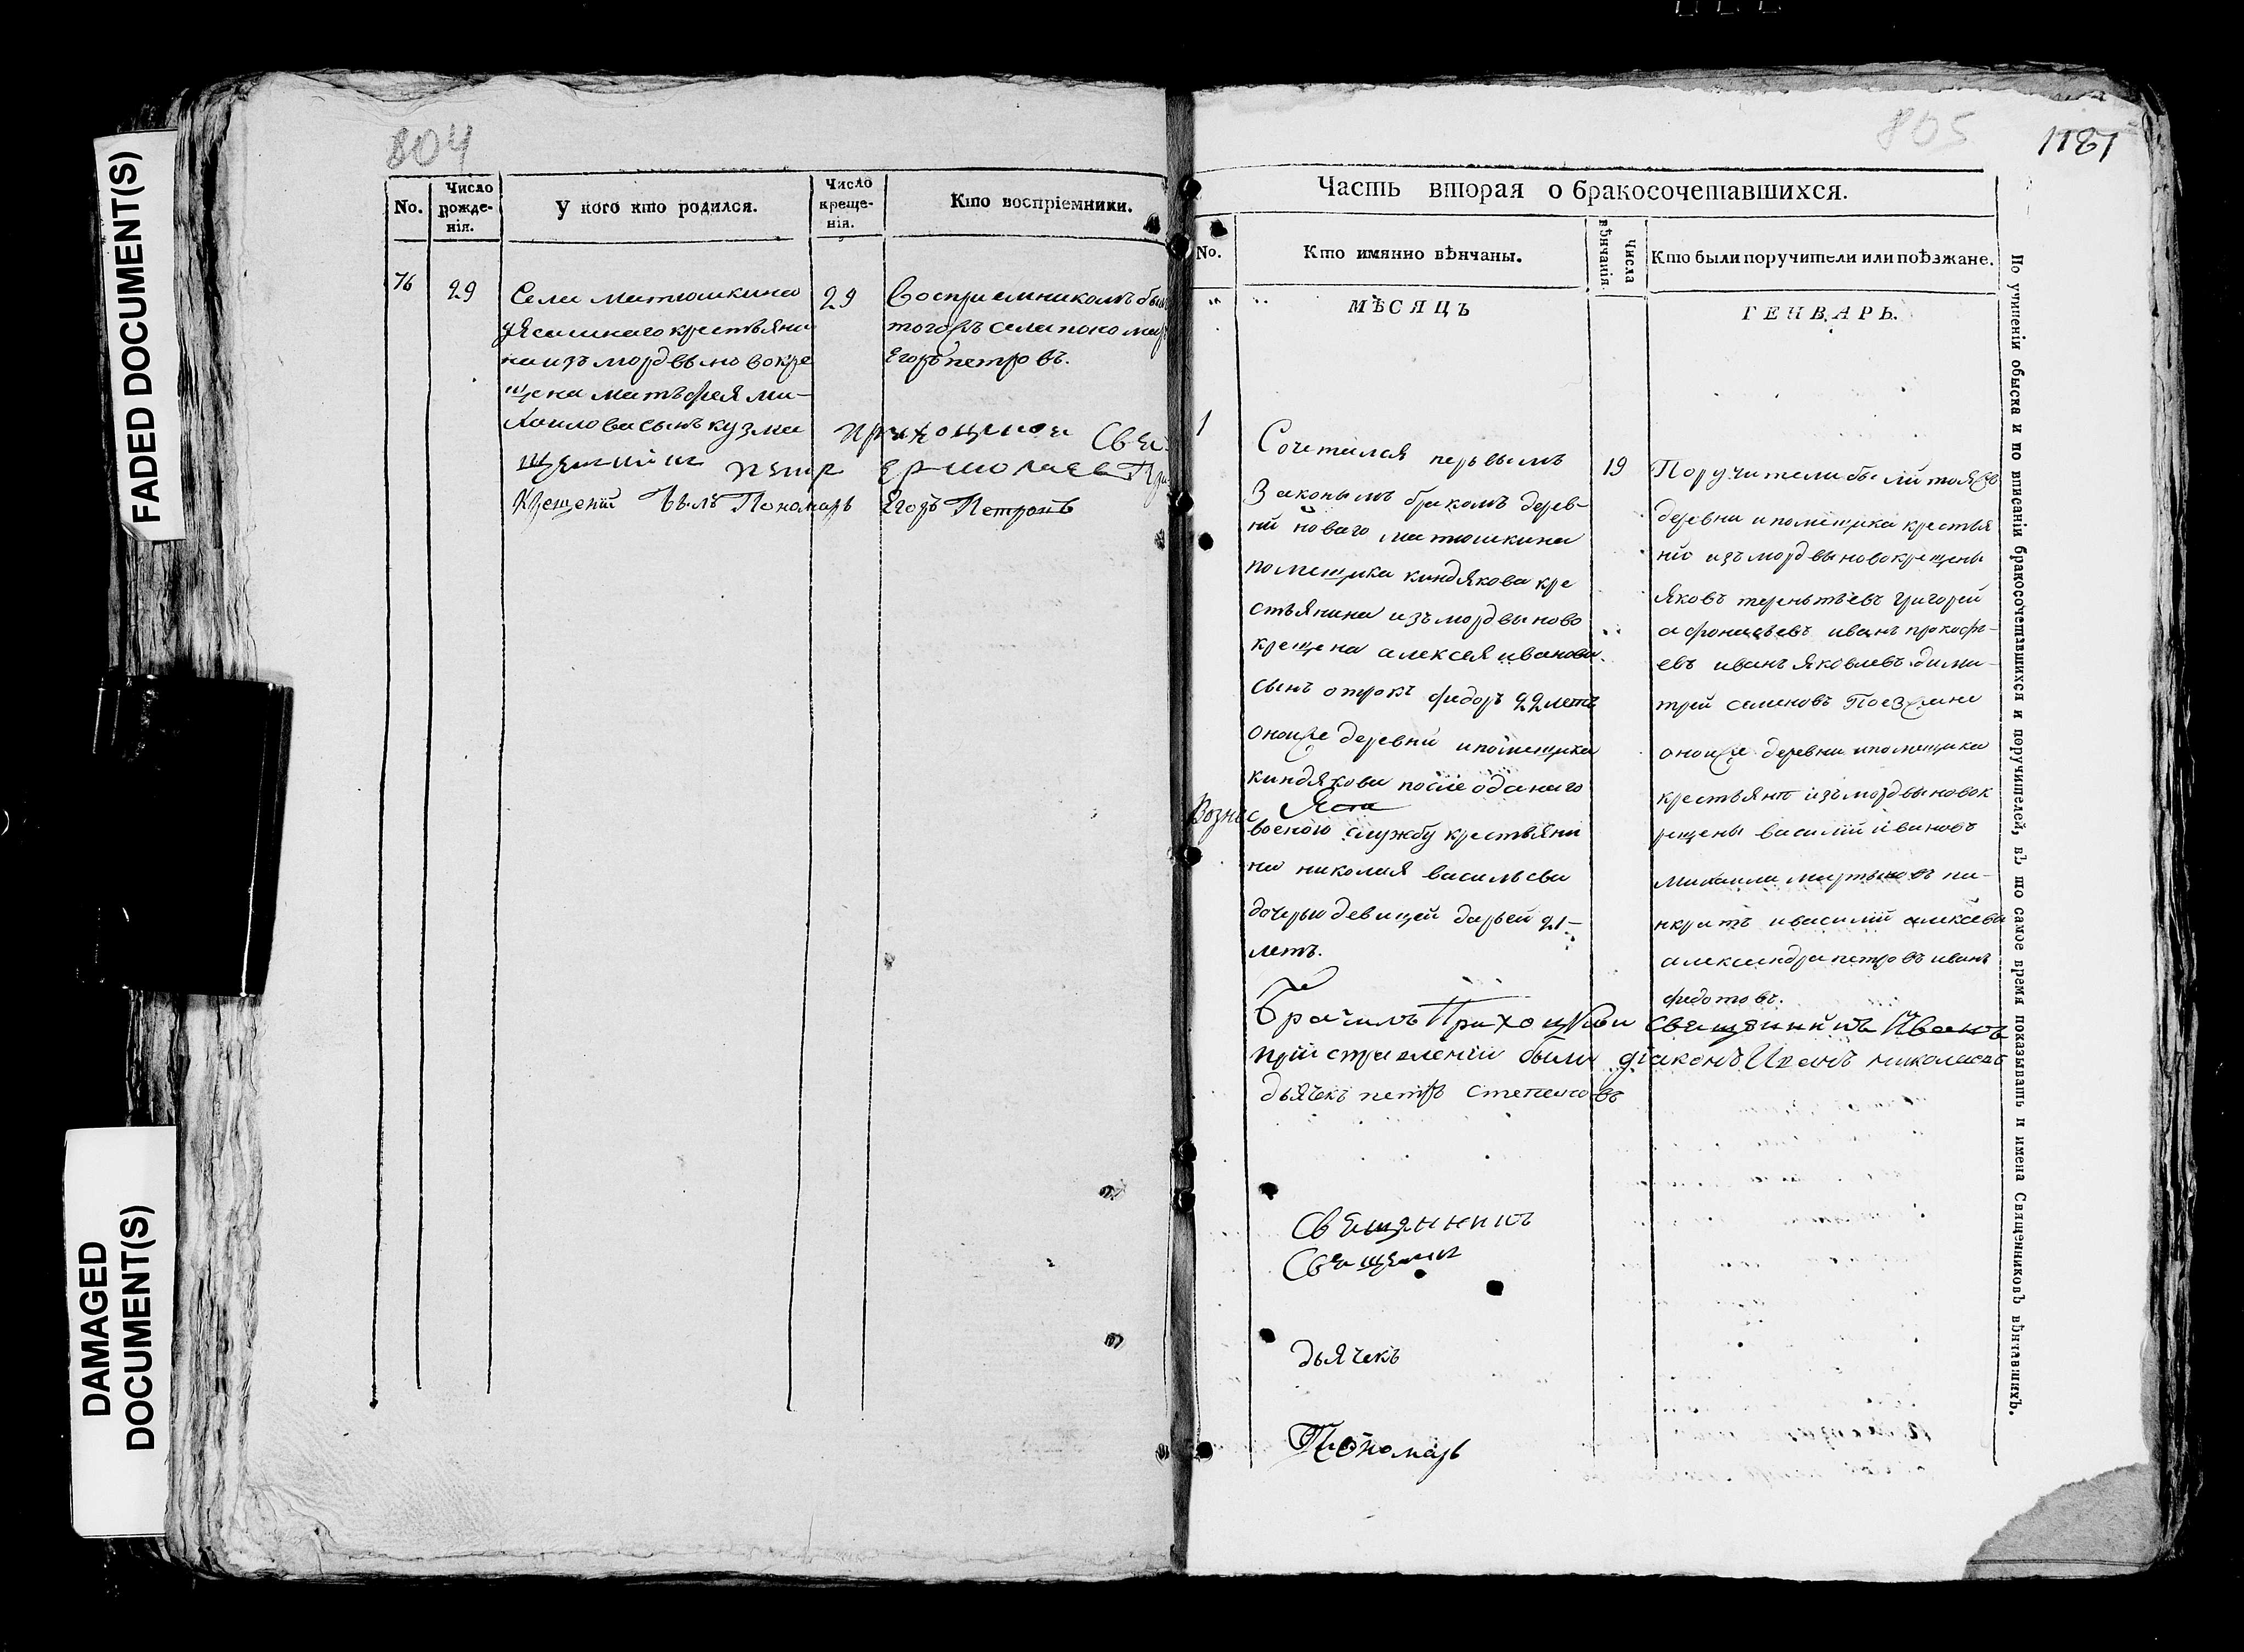 FADED DOCUMENT(S)
DAMAGED
DOCUMENT(S)
804
No.
Число
рожде-
нія.
У кого кто родился.
Число
креще-
нія.
Кто воспріемники.
76
29
Села матюшкина
ясашнаго крестьяни
на изъ мордвы новокре
щена матьфея ми-
хаилова сынъ кузма
29
Восприемникомъ был
тогожъ села поно мар
Егоръ петровъ.
Петр Ермолаев
Крещении былъ Пономарь Егоръ Петровъ
805
1187
Часть вторая о бракосочетавшихся.
No.
Кто имянно вѣнчаны.
Числа
вѣнчанія
Кто были поручители или поѣзжане.
МѢСЯЦЪ
ГЕНВАРЬ.
1
Сочетался первымъ
Законымъ бракомъ дерев-
ни новаго матюшкина
помещика киндякова кре
стьянина изъ мордвы ново
крещена алексея иванова
сынъ отрокъ федоръ 22 летъ
оной же деревни и помещика
киндякова после оданаго
Вознес
военою службу крестьяни
на николая васильева
дочерью девицей дарьей 21-
летъ.
19
Поручители были тояже
деревни и помещика крестья
не изъ мордвы новокрещены
Яковъ терентьевъ григорей
афонасьевъ иванъ прокофь-
евъ иванъ яковлевъ дими-
трей семеновъ Поезжане
оной же деревни и помещика
крестьяне изъ мордвы новок
рещены василий ивановъ
михаила мартыновъ па-
нкратъ и василий алексеевы
александра петровъ иванъ
федотовъ.
Священникъ Иванъ
были диаконъ Иванъ николаевъ
дьячекъ петръ степановъ
Священникъ
Дьячекъ
Пономарь
По учиненіи обыска и по вписаніи бракосочетавшихся и поручителей, въ то самое время показывать и имена Священниковъ вѣнчавшихъ.